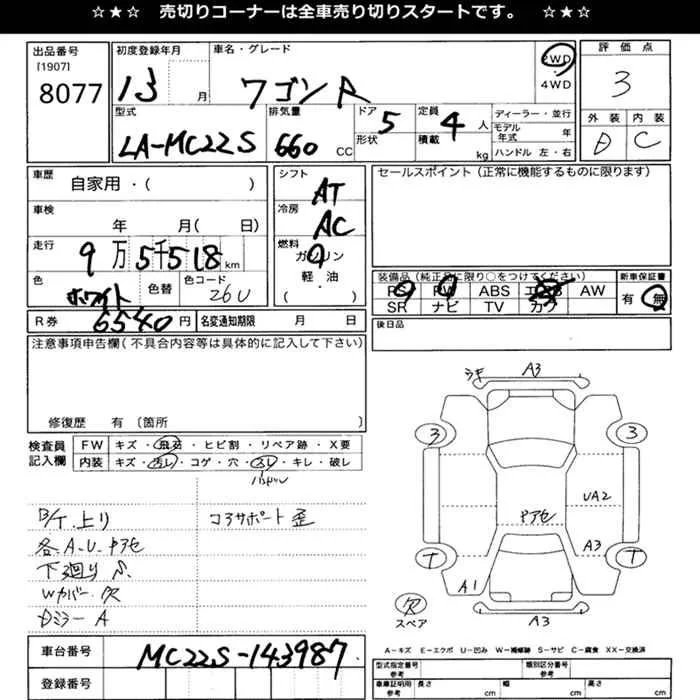 ☆★☆ 売切りコーナーは全車売り切りスタートです。 ☆★☆
出品番号 [1907] 8077
初度登録年月 13 月
車名・グレード ワゴンR
2WD
4WD
評価点 3
外装 D 内装 C
型式 LA-MC22S
排気量 660 CC
ドア 5 形状
定員 4 人
積載 kg
ディーラー・並行
モデル年式 年
ハンドル 左・右
車歴 自家用・( )
シフト AT
セールスポイント(正常に機能するものに限ります)
車検 年 月( 日)
冷房 AC
走行 9万5千518km
燃料 ガソリン
軽・油
( )
色 ホワイト 色替 色コード 26U
装備品(純正品に限り○をつけてください)
PS PW ABS エアB AW
SR ナビ TV カワ
新車保証書 有 無
R券 6540円 名変通知期限 月 日
後日品
注意事項申告欄(不具合内容等は具体的に記入して下さい)
修復歴 有〔箇所
検査員記入欄
FW キズ・飛石・ヒビ割・リペア跡・X要
内装 キズ・汚レ・コゲ・穴・スレ・キレ・破レ
ハンドル
コアサポート歪
各A.U.ヤアセ
下廻りS
Wカバー欠
Dミラー A
A3
3
3
UA2
ヤアセ
A3
T
T
A1
欠
スペア
A3
A-キズ E-エクボ U-凹み W-補修跡 S-サビ C-腐食 XX-交換済
車台番号 MC22S-143987
登録番号
型式指定番号 参考
類別区分番号 参考
車庫証明用 参考 長さ cm 幅 cm 高さ cm